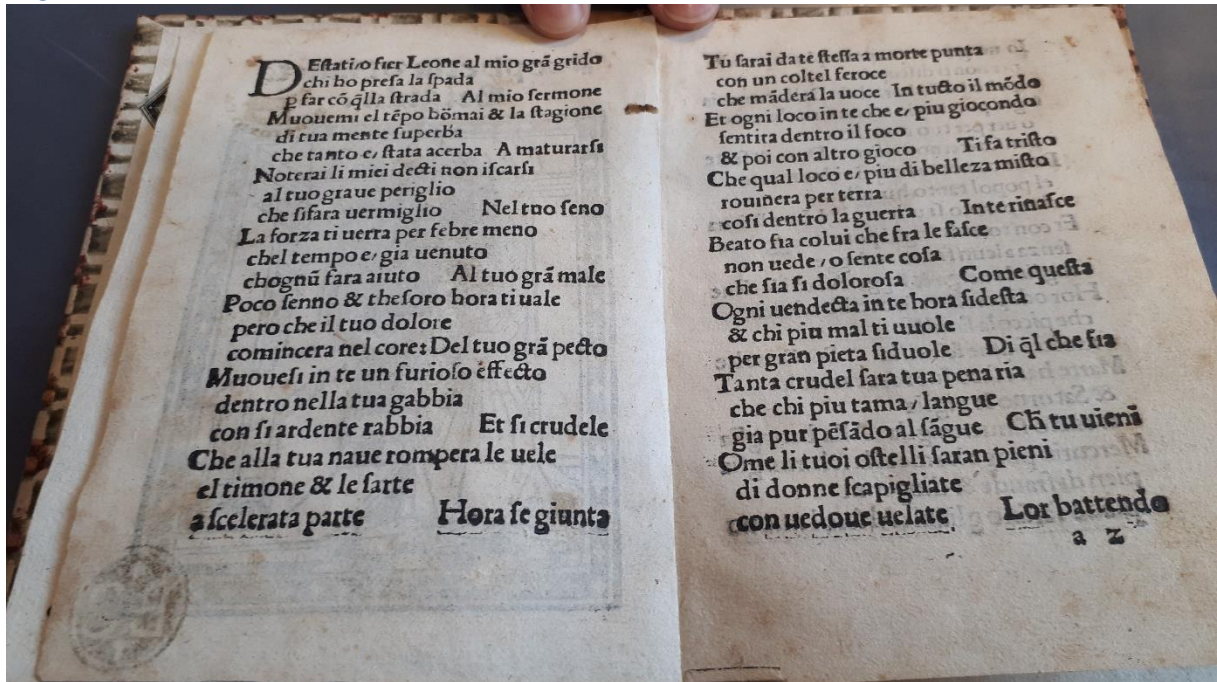 DEſtati/o fier Leone al mio grā grido
chi ho preſa la ſpada
p̲ far cō q̄lla ſtrada Al mio ſermone
Muouemi el tēpo hōmai & la ſtagione
di tua mente ſuperba
che tanto e/ ſtata acerba A maturarſi
Noterai li miei decti non iſcarſi
al tuo graue periglio
che ſifara uermiglio Nel tuo ſeno
La forza ti uerra per febre meno
chel tempo e/ gia uenuto
chognū fara aiuto Al tuo grā male
Poco ſenno & theſoro hora ti uale
pero che il tuo dolore
comincera nel core: Del tuo grā pecto
Muoueſi in te un furioſo effecto
dentro nella tua gabbia
con ſi ardente rabbia Et ſi crudele
Che alla tua naue rompera le uele
el timone & le ſarte
a ſcelerata parte Hora ſe giunta
Tu ſarai da te ſteſſa a morte punta
con un coltel feroce
che māderà la uoce In tucto il mōdo
Et ogni loco in te che e/ piu giocondo
ſentira dentro il foco
& poi con altro gioco Ti fa triſto
Che qual loco e/ piu di belleza miſto
rouinera per terra
coſi dentro la guerra In te rinaſce
Beato fia colui che fra le faſce
non uede / o ſente coſa
che ſia ſi doloroſa Come queſta
Ogni uendecta in te hora ſideſta
& chi piu mal ti uuole
per gran pieta ſiduole Di q̄l che ſia
Tanta crudel ſara tua pena ria
che chi piu tama / langue
gia pur pēſādo al ſāgue Ch̄ tu uieni
Ome li tuoi oſtelli ſaran pieni
di donne ſcapigliate
con uedoue uelate Lor battendo
a 2